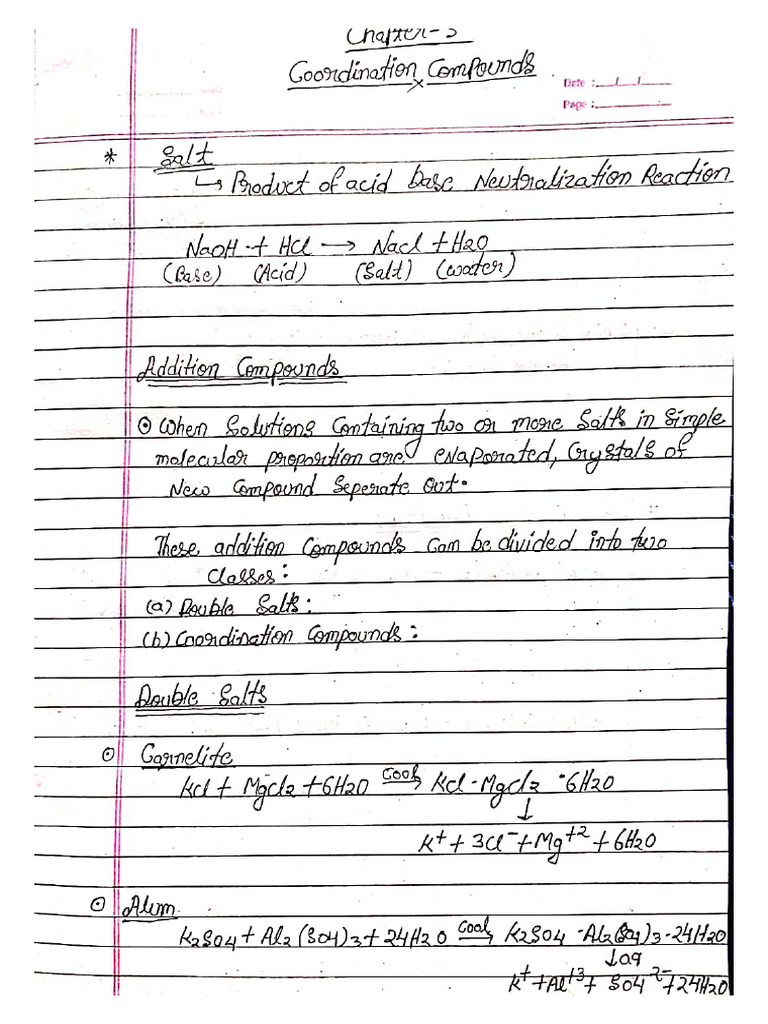 Chapter-5
Coordination Compounds
Date :
Page :
* Salt
↳ Product of acid base Neutralization Reaction
NaOH + HCl → NaCl + H2O
(Base) (Acid) (Salt) (water)
Addition Compounds
⊙ When Solutions Containing two or more Salts in Simple
molecular proportion are evaporated, Crystals of
New Compound Seperate out.
These addition Compounds Can be divided into two
Classes:
(a) Double Salts:
(b) Coordination Compounds:
Double Salts
⊙ Carnelite
KCl + MgCl2 + 6H2O Cool → KCl·MgCl2·6H2O
↓
K+ + 3Cl- + Mg+2 + 6H2O
⊙ Alum
K2SO4 + Al2(SO4)3 + 24H2O Cool → K2SO4·Al2(SO4)3·24H2O
↓aq
K+ + Al+3 + SO4 2- + 24H2O